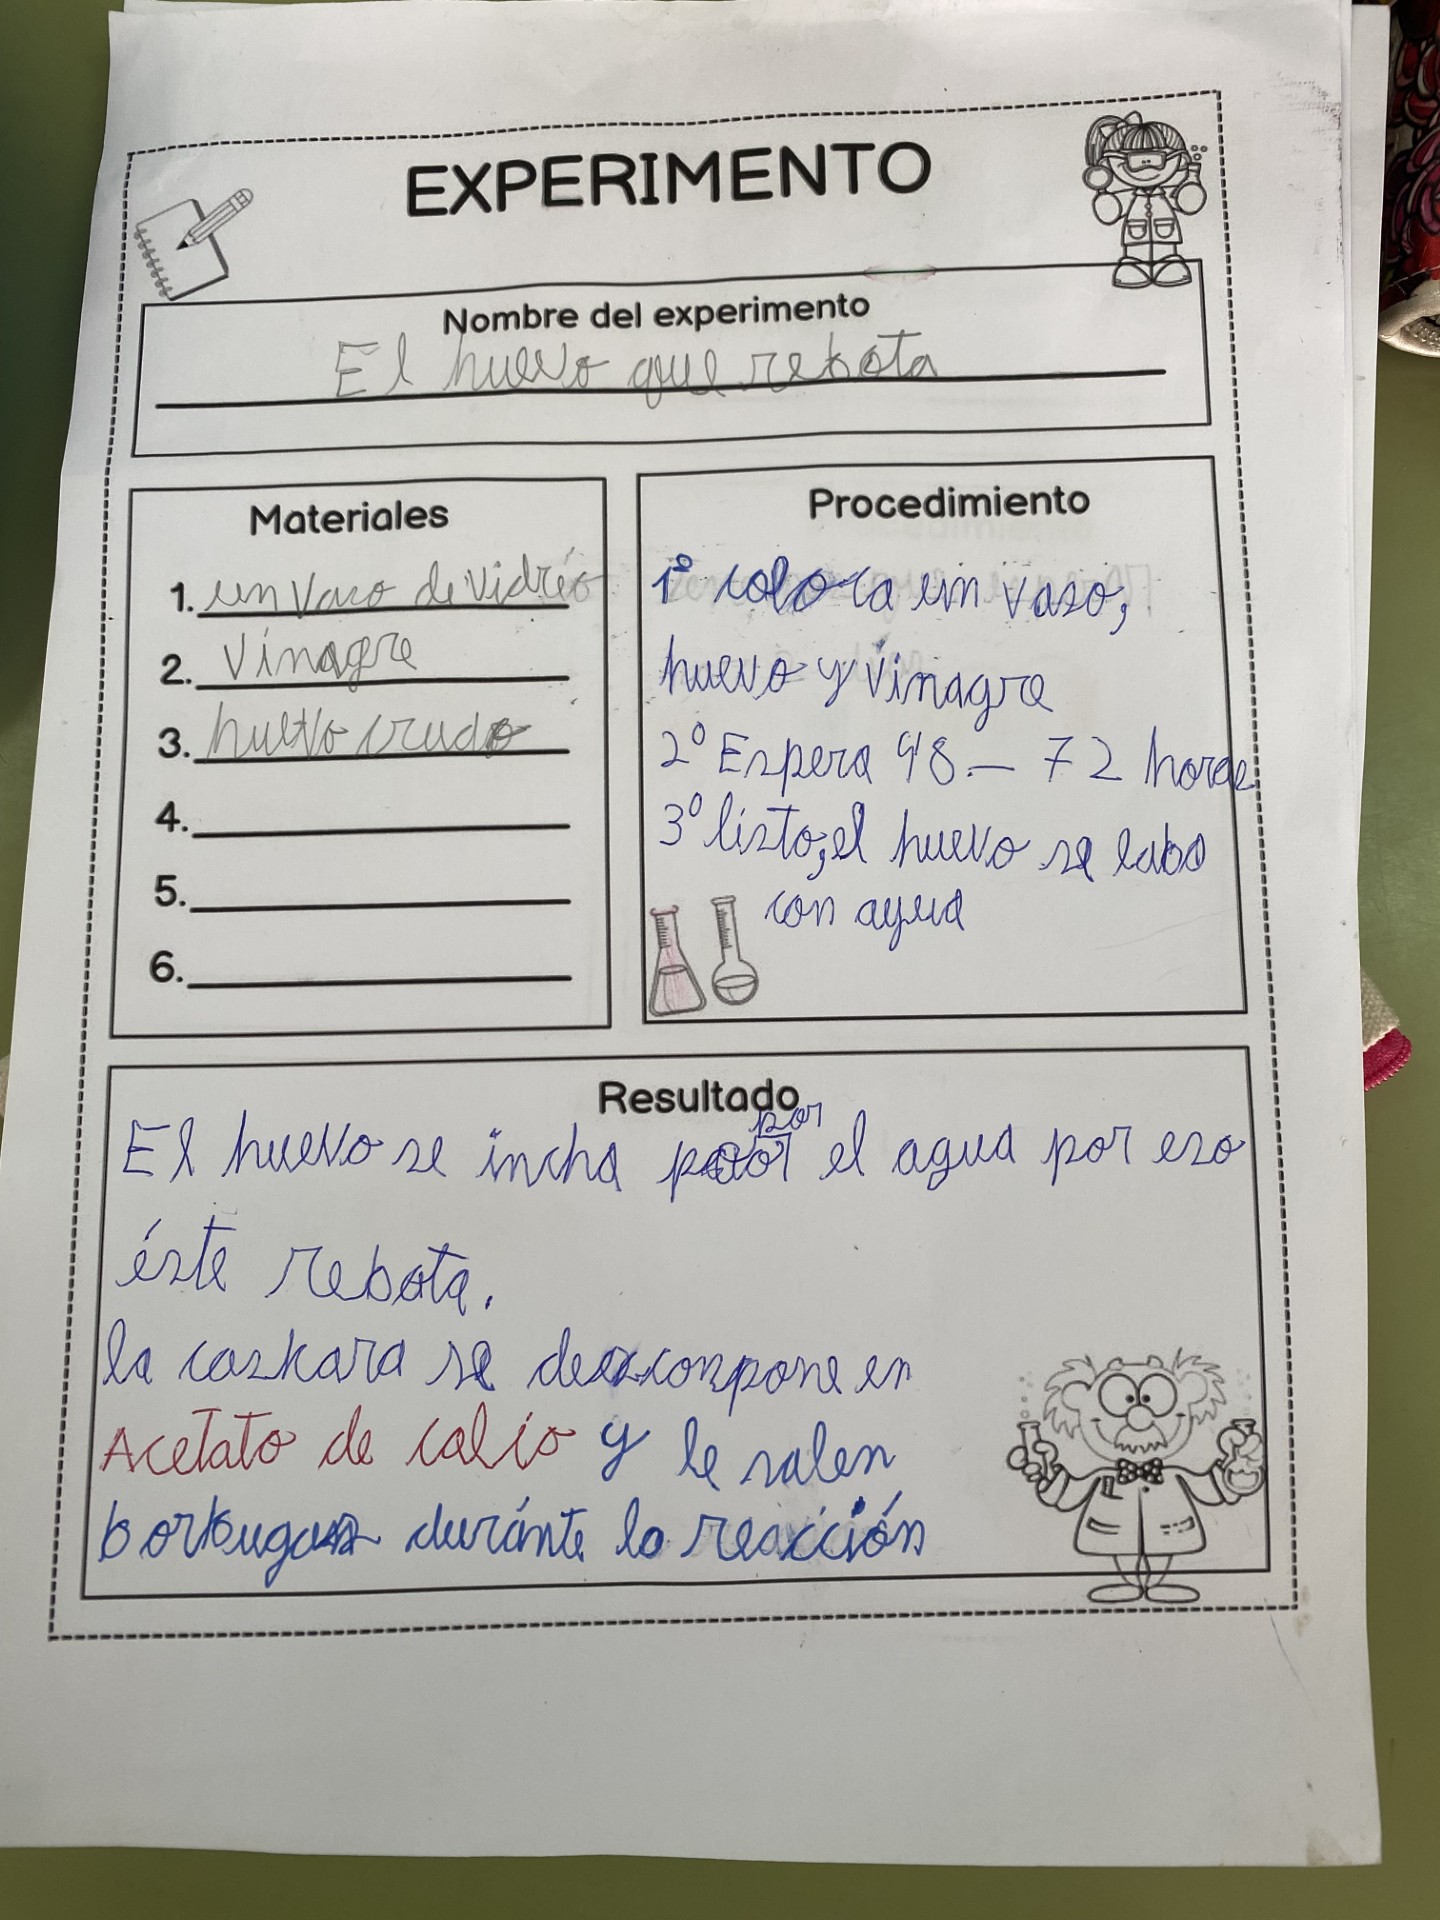 EXPERIMENTO
Nombre del experimento
El huevo que rebota
Materiales
1. un vaso de vidrio
2. Vinagre
3. huevo crudo
4.
5.
6.
Procedimiento
1º coloca un vaso,
huevo y vinagre
2º Espera 48 - 72 horas
3º listo, el huevo se laba
con agua
Resultado
por
El huevo se incha por el agua por eso
éste rebota.
la caskara se desconpone en
Acetato de calio y le salen
borbugas duránte la reacción